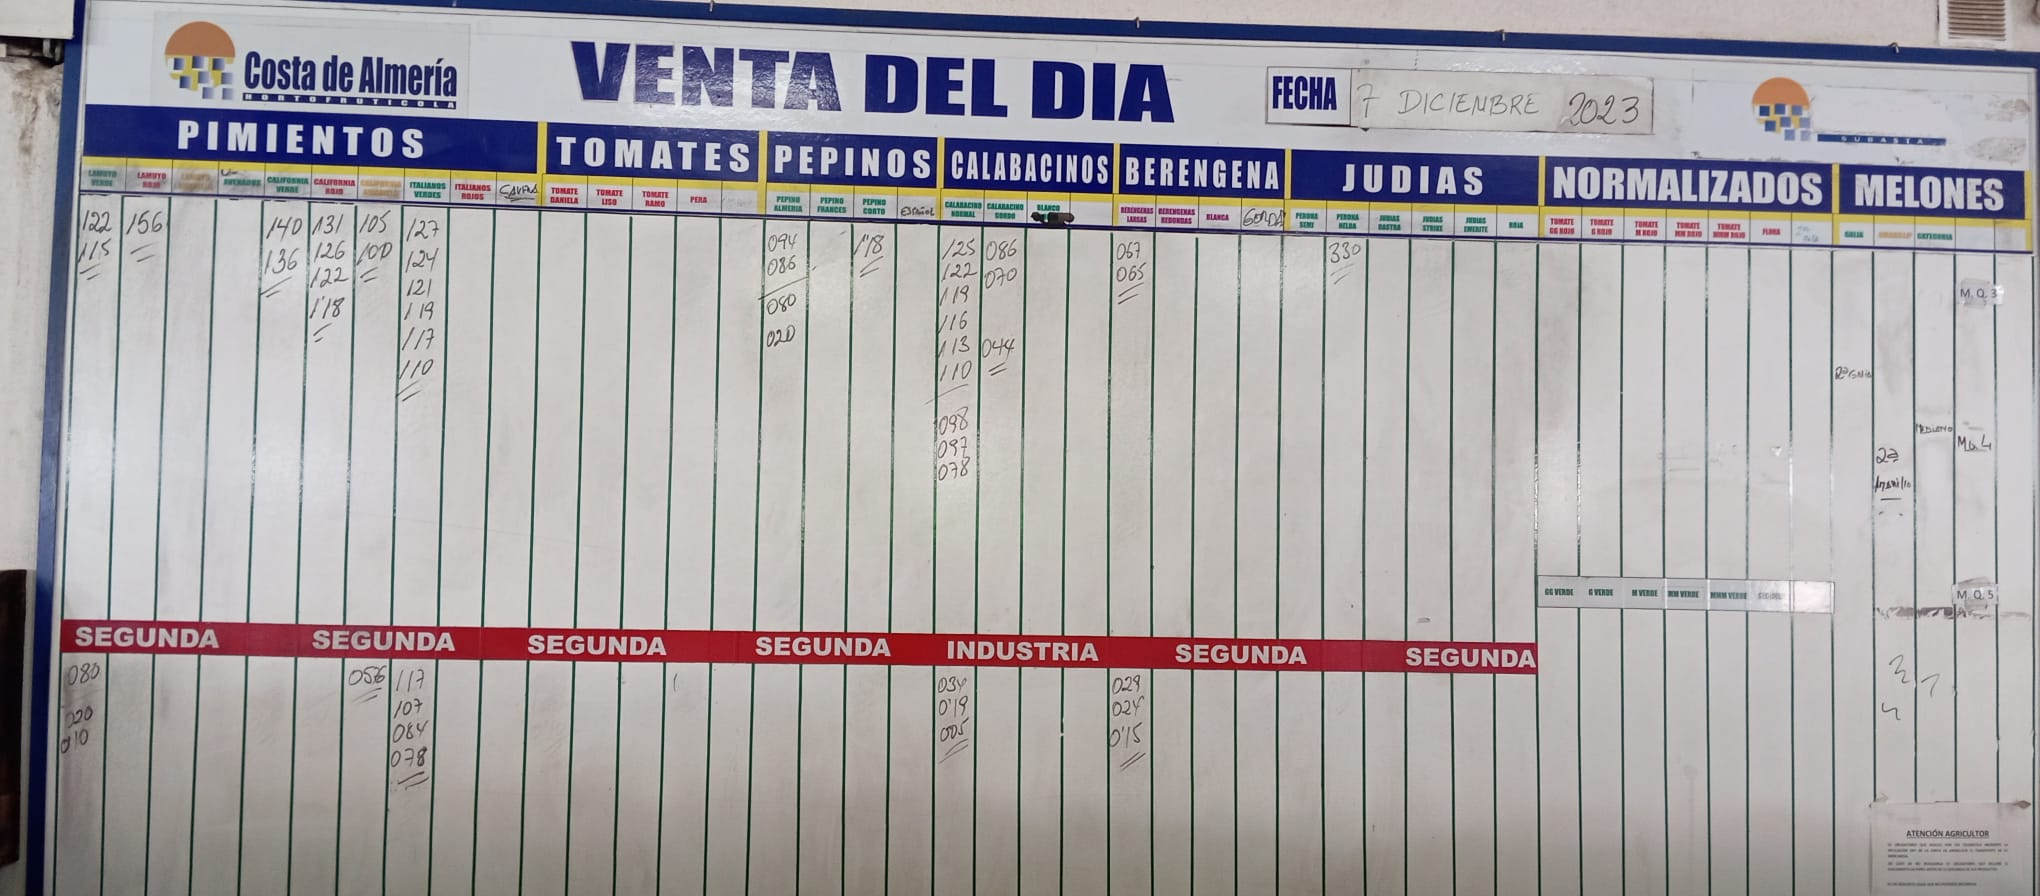 Costa de Almería
HORTOFRUTICOLA
VENTA DEL DIA
FECHA 7 DICIEMBRE 2023
SUBASTA
PIMIENTOS TOMATES PEPINOS CALABACINOS BERENGENA JUDIAS NORMALIZADOS MELONES
LAMUYO VERDE
LAMUYO ROJO
CALIFORNIA VERDE
CALIFORNIA ROJO
CALIFORNIA
ITALIANOS VERDES
ITALIANOS ROJOS
TOMATE DANIELA
TOMATE LISO
TOMATE RAMO
PERA
PEPINO ALMERIA
PEPINO FRANCES
PEPINO CORTO
ESPAÑOL
CALABACINO NORMAL
CALABACINO GORDO
BLANCO
BERENGENAS LARGAS
BERENGENAS REDONDAS
BLANCA
GORDA
PERONA SEMI
PERONA HELDA
JUDIAS RASTRA
JUDIAS STRIKE
JUDIAS EMERITE
ROJA
TOMATE GG ROJO
TOMATE G ROJO
TOMATE M ROJO
TOMATE MM ROJO
TOMATE MMM ROJO
FLORA
GALIA
AMARILLO
CATEGORIA
122 156 140 131 105 127
115 136 126 100 124
122 121
118 119
117
110
094 1'18 125 086 067 330
086 122 070 065
080 119
020 116
113 044
110
098
097
078
M. Q. 3
MEDIANO
M Q 4
2ª
Amarillo
GG VERDE G VERDE M VERDE MM VERDE MMM VERDE
M. Q. 5
SEGUNDA SEGUNDA SEGUNDA SEGUNDA INDUSTRIA SEGUNDA SEGUNDA
080 056 117 034 029
020 107 0'19 024
010 084 005 0'15
078
ATENCIÓN AGRICULTOR